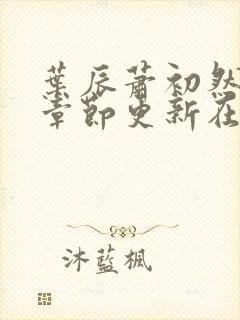 葉辰蕭初然
章節更新在
沐藍楓